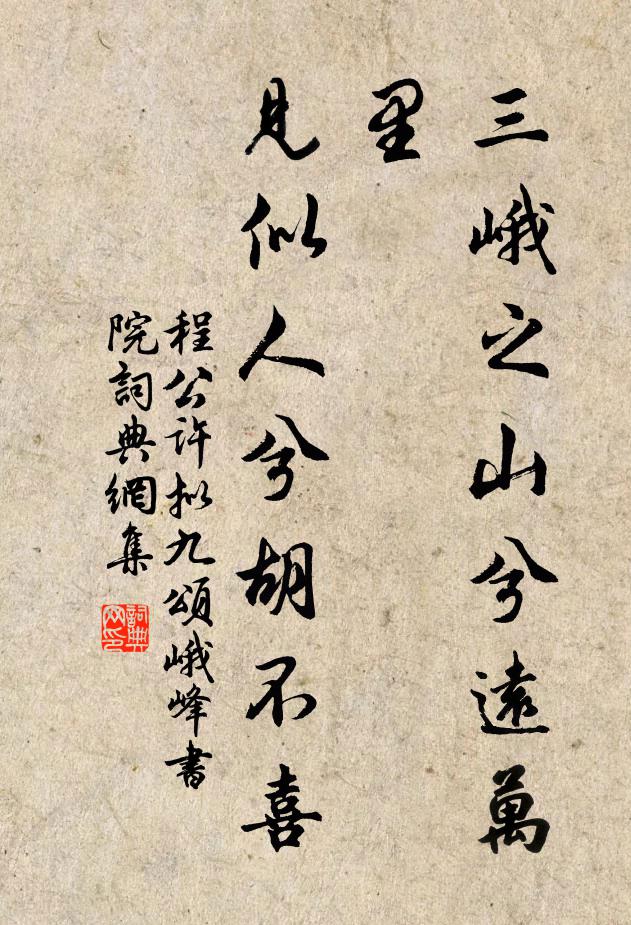 三峨之山兮遠萬
里
見似人兮胡不喜
程公許拟九頌峨峰書
院詞典網集
詞典
网印